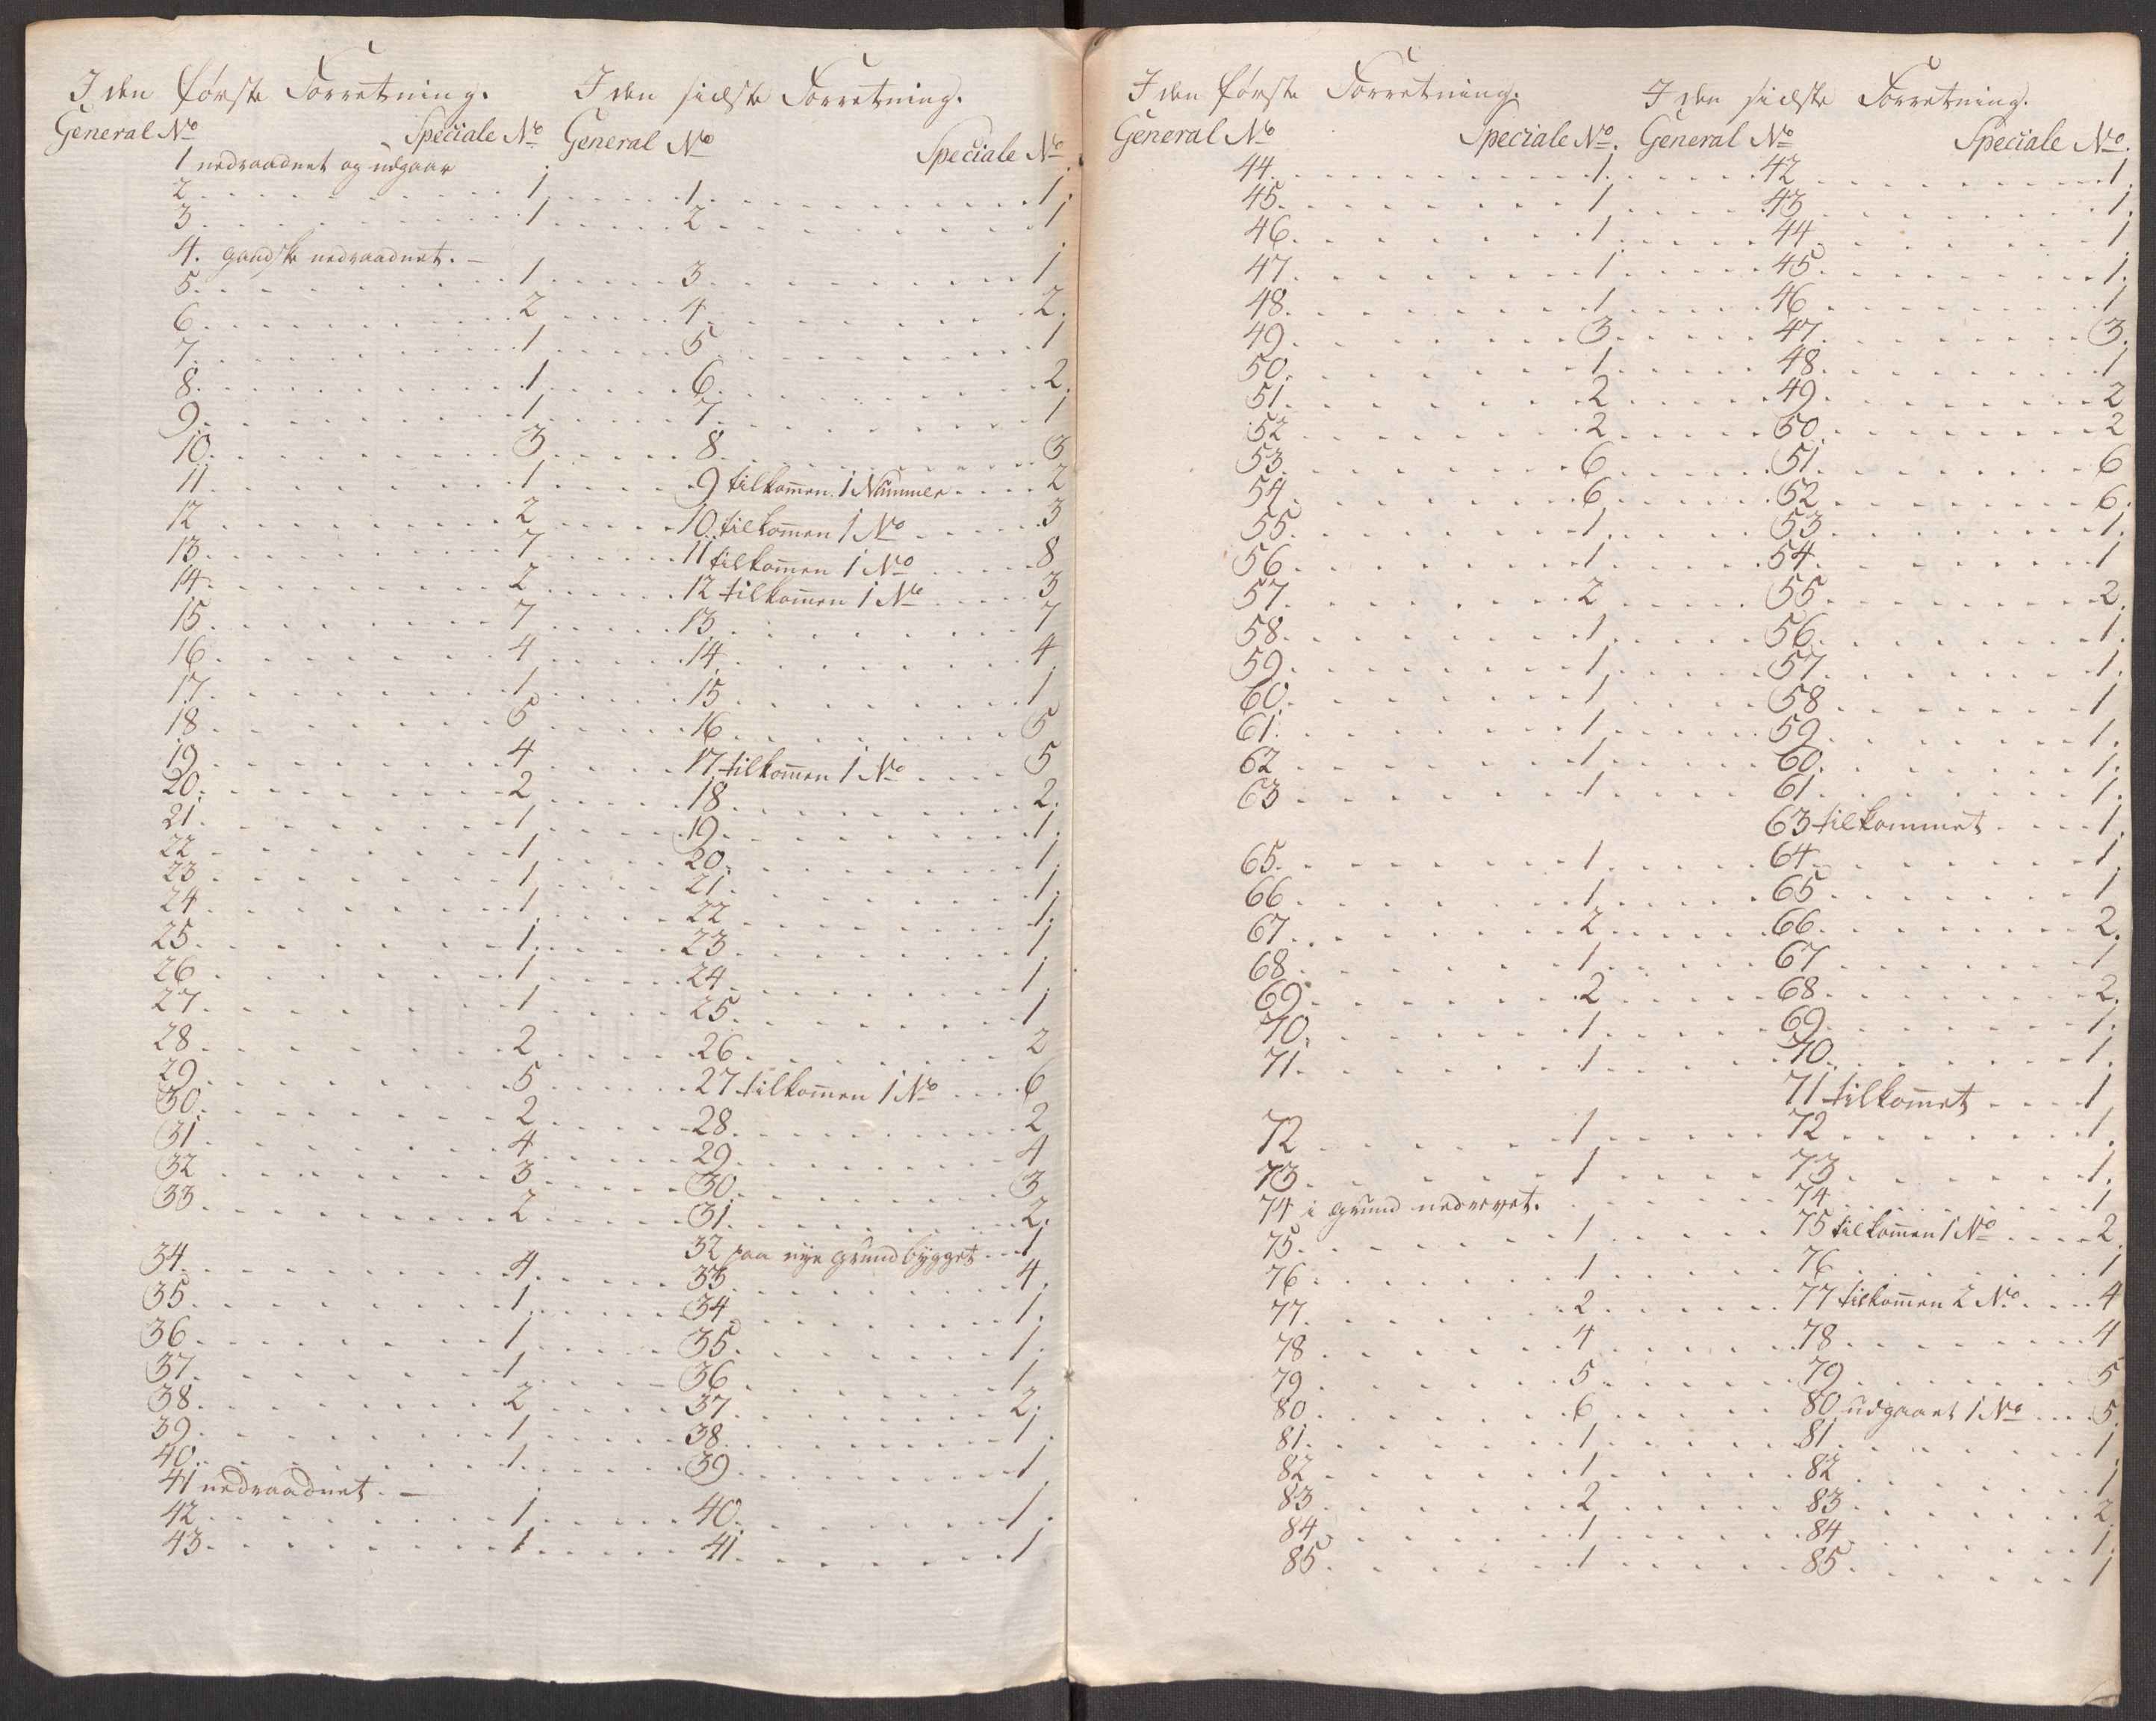 I den første Forretning. I den sidste Forretning.
General No Speciale No General No Speciale No
1 nedraadnet og udgaar
2 1 1 1
3 1 2 1
4. gandske nedraadnet. –
5 1 3 1
6 2 4 2
7 1 5 1
8 1 6 2
9 1 7 1
10 3 8 3
11 1 9 tilkomen 1 Nummer 2
12 2 10 tilkomen 1 No 3
13 7 11 tilkomen 1 No 8
14 2 12 tilkomen 1 No 3
15 7 13 7
16 4 14 4
17 1 15 1
18 5 16 5
19 4 17 tilkomen 1 No 5
20 2 18 2
21 1 19 1
22 1 20 1
23 1 21 1
24 1 22 1
25 1 23 1
26 1 24 1
27 1 25 1
28 2 26 2
29 5 27 tilkomen 1 No 6
30 2 28 2
31 4 29 4
32 3 30 3
33 2 31 2
32 paa nye grund bygget 1
34 4 33 4
35 1 34 1
36 1 35 1
37 1 36 1
38 2 37 2
39 1 38 1
40 1 39 1
41 nedraadnet. –
42 1 40 1
43 1 41 1
I den første Forretning. I den sidste Forretning.
General No Speciale No. General No Speciale No.
44 1 42 1
45 1 43 1
46 1 44 1
47 1 45 1
48 1 46 1
49 3 47 3
50 1 48 1
51 2 49 2
52 2 50 2
53 6 51 6
54 6 52 6
55 1 53 1
56 1 54 1
57 2 55 2
58 1 56 1
59 1 57 1
60 1 58 1
61 1 59 1
62 1 60 1
63 1 61 1
63 tilkommet 1
65 1 64 1
66 1 65 1
67 2 66 2
68 1 67 1
69 2 68 2
70 1 69 1
71 1 70 1
71 tilkomet 1
72 1 72 1
73 1 73 1
74 i grund nedrevet. 74 1
75 1 75 tilkomen 1 No 2
76 1 76 1
77 2 77 tilkomen 2 No 4
78 4 78 4
79 5 79 5
80 6 80 udgaaet 1 No 5
81 1 81 1
82 1 82 1
83 2 83 2
84 1 84 1
85 1 85 1